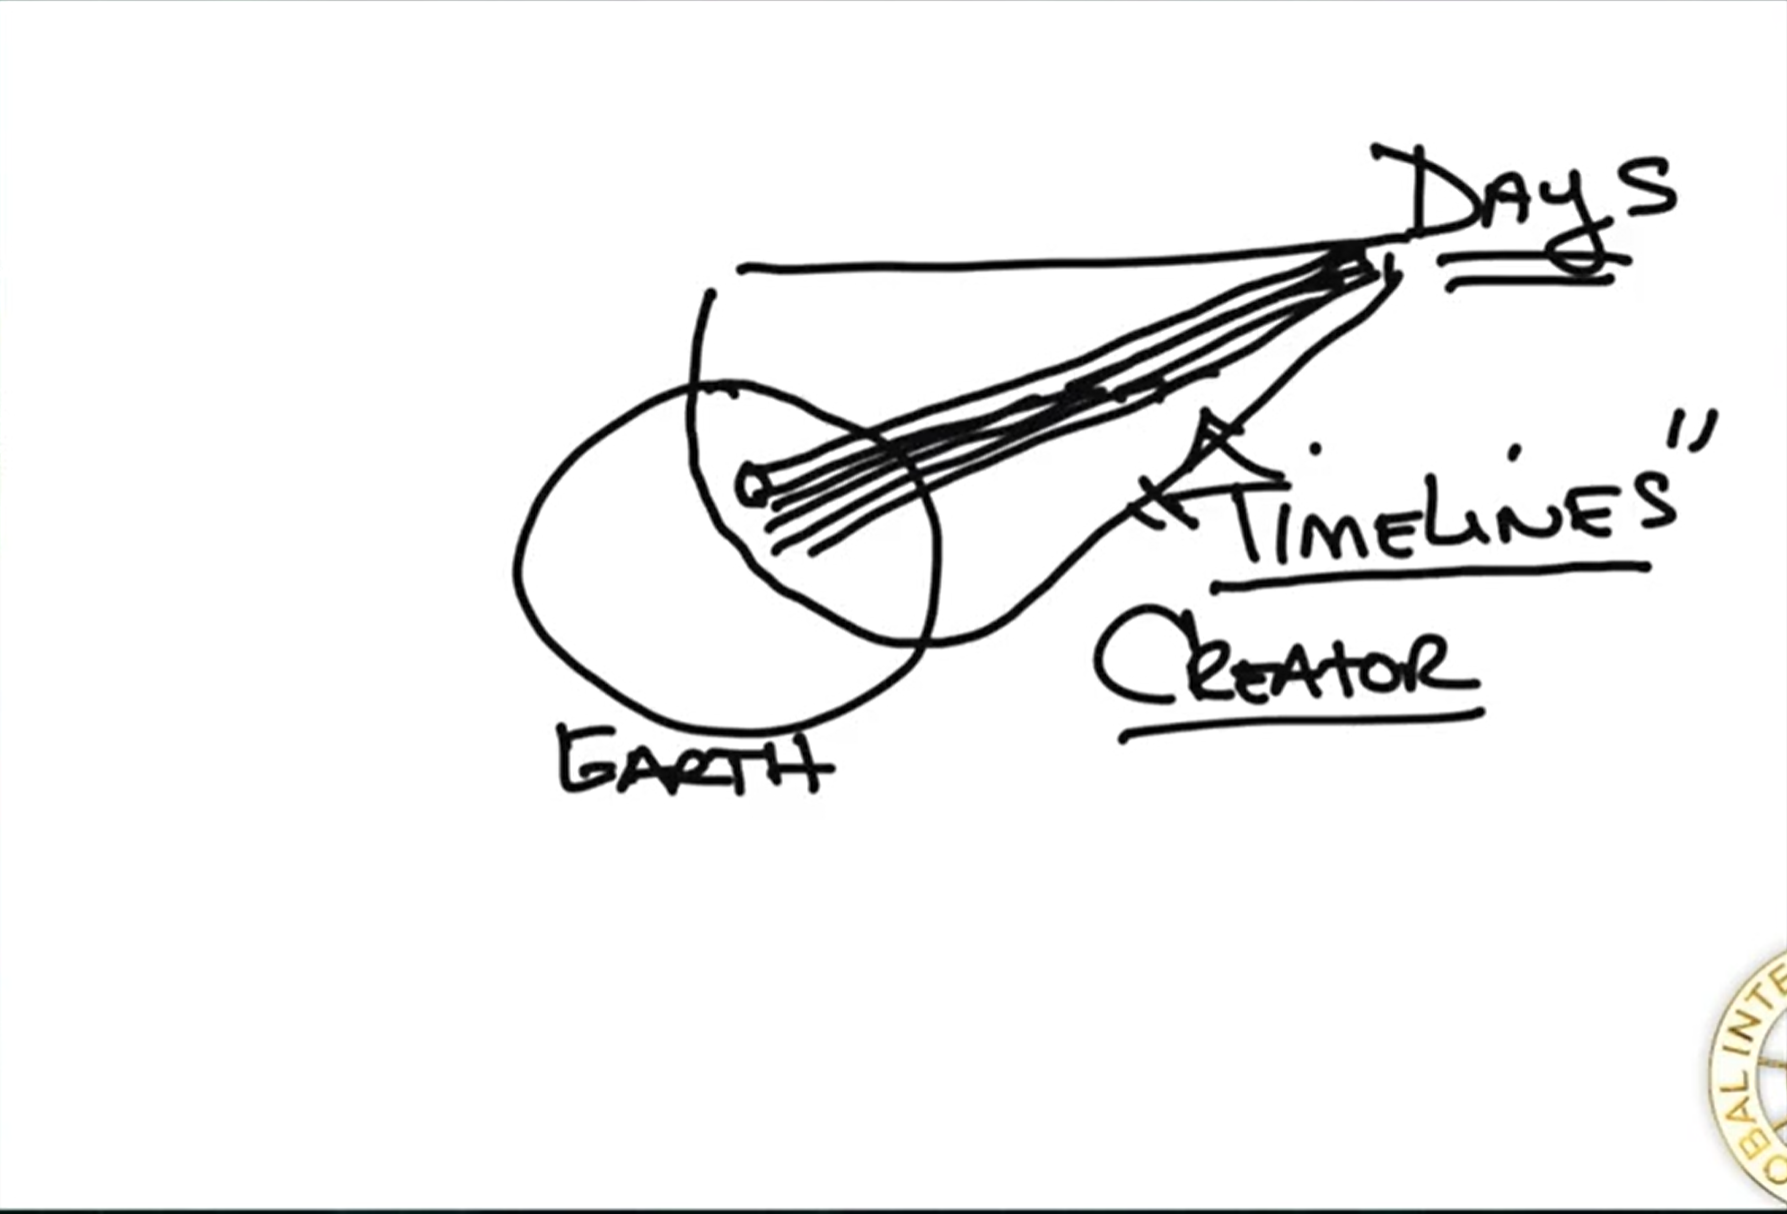 DAYS
TIMELINES"
CREATOR
EARTH
OBAL INTE